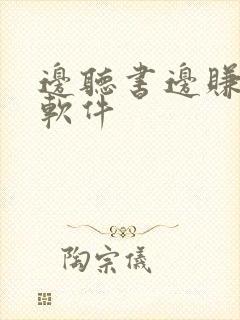 邊聽書邊賺
軟件
陶宗儀